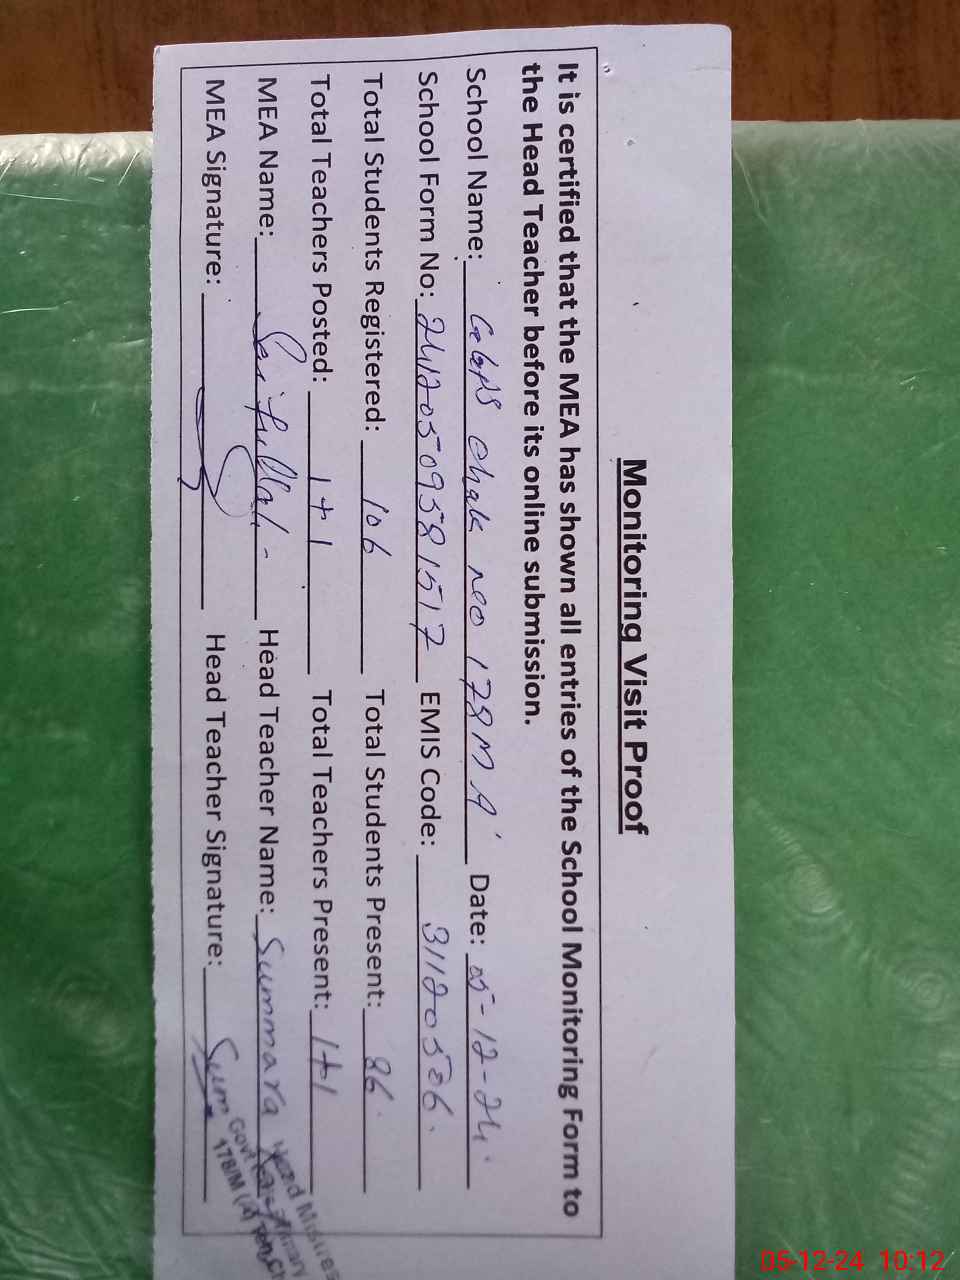 Monitoring Visit Proof
It is certified that the MEA has shown all entries of the School Monitoring Form to
the Head Teacher before its online submission.
School Name: GGPS Chak no 178 M A Date: 05-12-24.
School Form No: 241205093581517 EMIS Code: 31120506.
Total Students Registered: 106 Total Students Present: 86.
Total Teachers Posted: 1+1 Total Teachers Present: 1+1
MEA Name: Saifullah - Head Teacher Name: Summara
MEA Signature: Head Teacher Signature: Sum
Head Mistress
Govt
178/M (A)
05-12-24 10:12